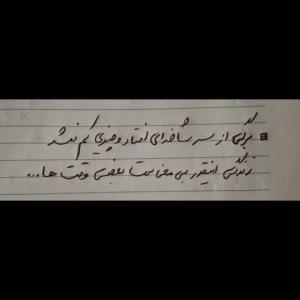 برگی از سر شاخه‌ای افتاد و چیزی کم نشد
زندگی اینقدر بی معنی ست بعضی وقت ها...